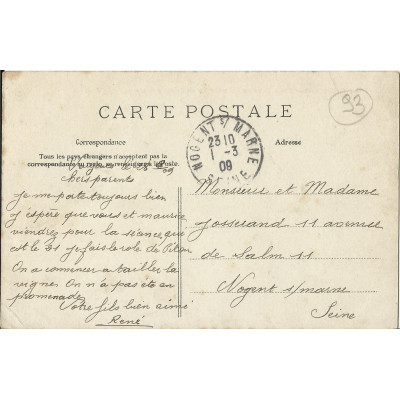 93
CARTE POSTALE
Correspondance
Adresse
Tous les pays étrangers n'acceptent pas la
correspondance au recto, se renseigner à la Poste.
NOGENT S/ MARNE
23 10
1 -3
09
SEINE
le 28 09
Mes parents
je me porte toujours bien
j'espère que vous et maurice
viendrez pour la séance, que
est le 21 je fais le rôle de
On a commencer a tailler la
vigne. On n'a pas ete en
promenade
Votre fils bien aimé
René
Monsieur et Madame
Josserand 11 avenue
de Salm 11
Nogent s/marne
Seine